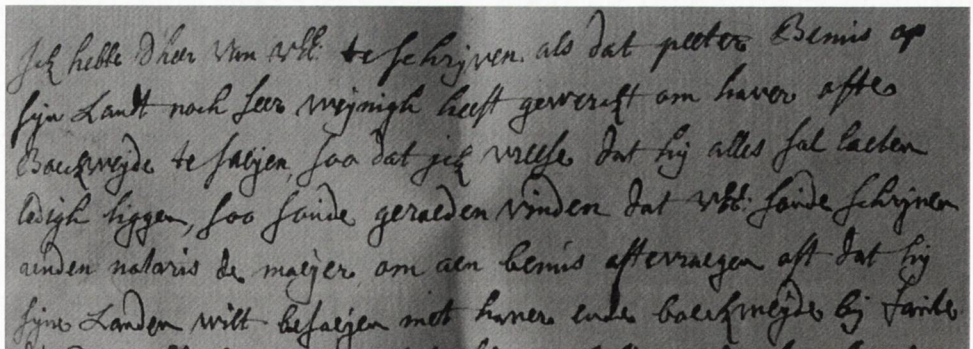 Jck hebbe d'heer van vEE: te schrijven als dat peeter Bemis op
sijn Landt noch seer weijnigh heeft gewerckt om haver ofte
Boeckweijde te saeijen, soo dat jck vreese dat hij alles sal laeten
ledigh liggen, soo soude geraeden vinden dat vEE: soude schrijven
aenden notaris de maeijer om aen bemis aftevraegen oft dat hij
sijne Landen wilt besaeijen met haver ende boeckweijde bij